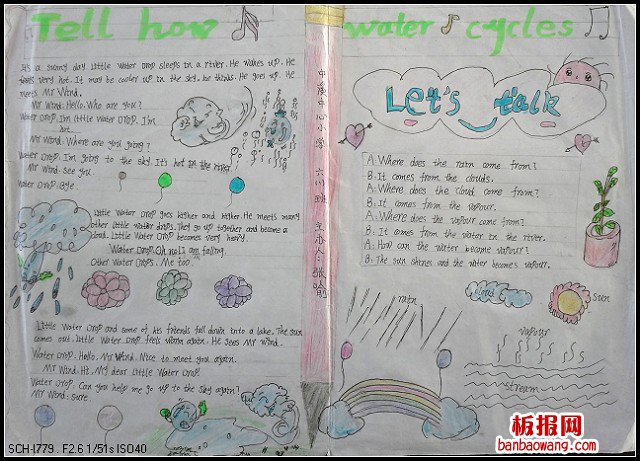 Tell how water cycles
It's a sunny day. Little Water Drop sleeps in a river. He wakes up. He
feels very hot. It may be cooler up in the sky, he thinks. He goes up. He
meets Mr Wind.
Mr Wind: Hello. Who are you?
Water Drop: I'm Little Water Drop. I'm
hot.
Mr Wind: Where are you going?
Water Drop: I'm going to the sky. It's hot in the river.
Mr Wind: See you.
Water Drop: Bye.
Little Water Drop goes higher and higher. He meets many
other little water drops. They go up together and become a
cloud. Little Water Drop becomes very heavy.
Water Drop: Oh no! I am falling.
Other Water Drops: Me too.
Little Water Drop and some of his friends fall down into a lake. The sun
comes out. Little Water Drop feels warm again. He sees Mr Wind.
Water Drop: Hello, Mr Wind. Nice to meet you again.
Mr Wind: Hi, My dear Little Water Drop.
Water Drop: Can you help me go up to the sky again?
Mr Wind: Sure.
中 心小学 六 班
Let's talk
A: Where does the rain come from?
B: It comes from the clouds.
A: Where does the cloud come from?
B: It comes from the vapour.
A: Where does the vapour come from?
B: It comes from the water in the river.
A: How can the water become vapour?
B: The sun shines and the water becomes vapour.
rain
cloud
sun
vapour
stream
SCH-I779 . F2.6 1/51s ISO40
板报网
banbaowang.com